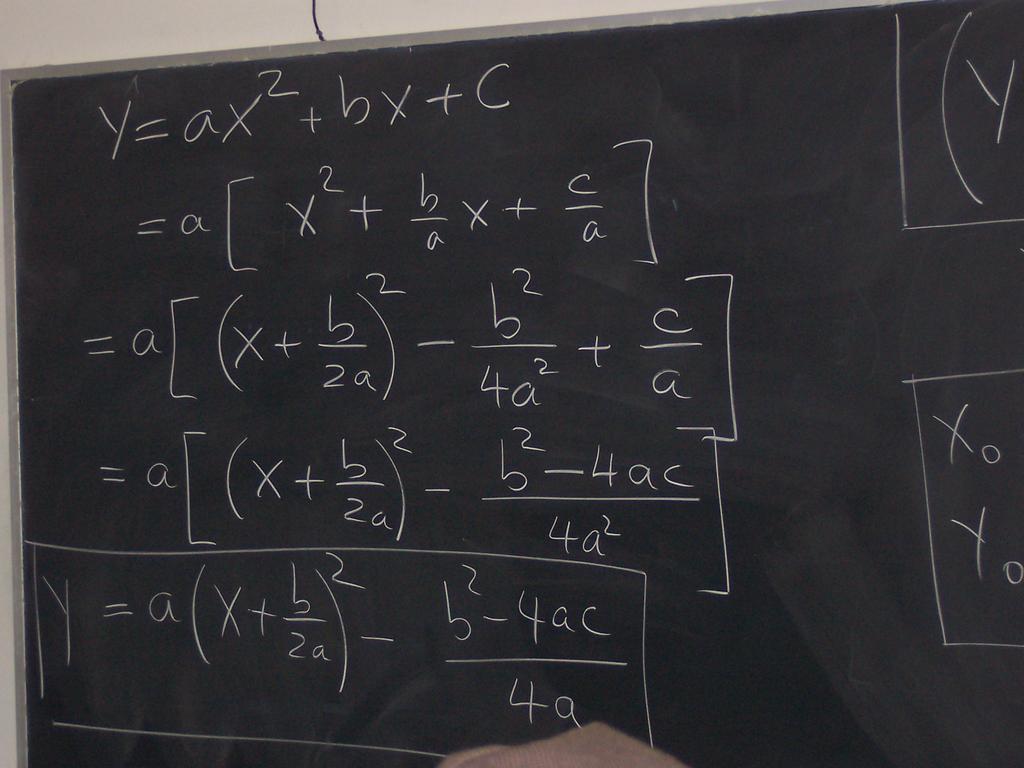 y = ax² + bx + c
= a [ x² + b/a x + c/a ]
= a [ (x + b/2a)² - b²/4a² + c/a ]
= a [ (x + b/2a)² - b² - 4ac/4a² ]
y = a (x + b/2a)² - b² - 4ac/4a
(y
x₀
y₀